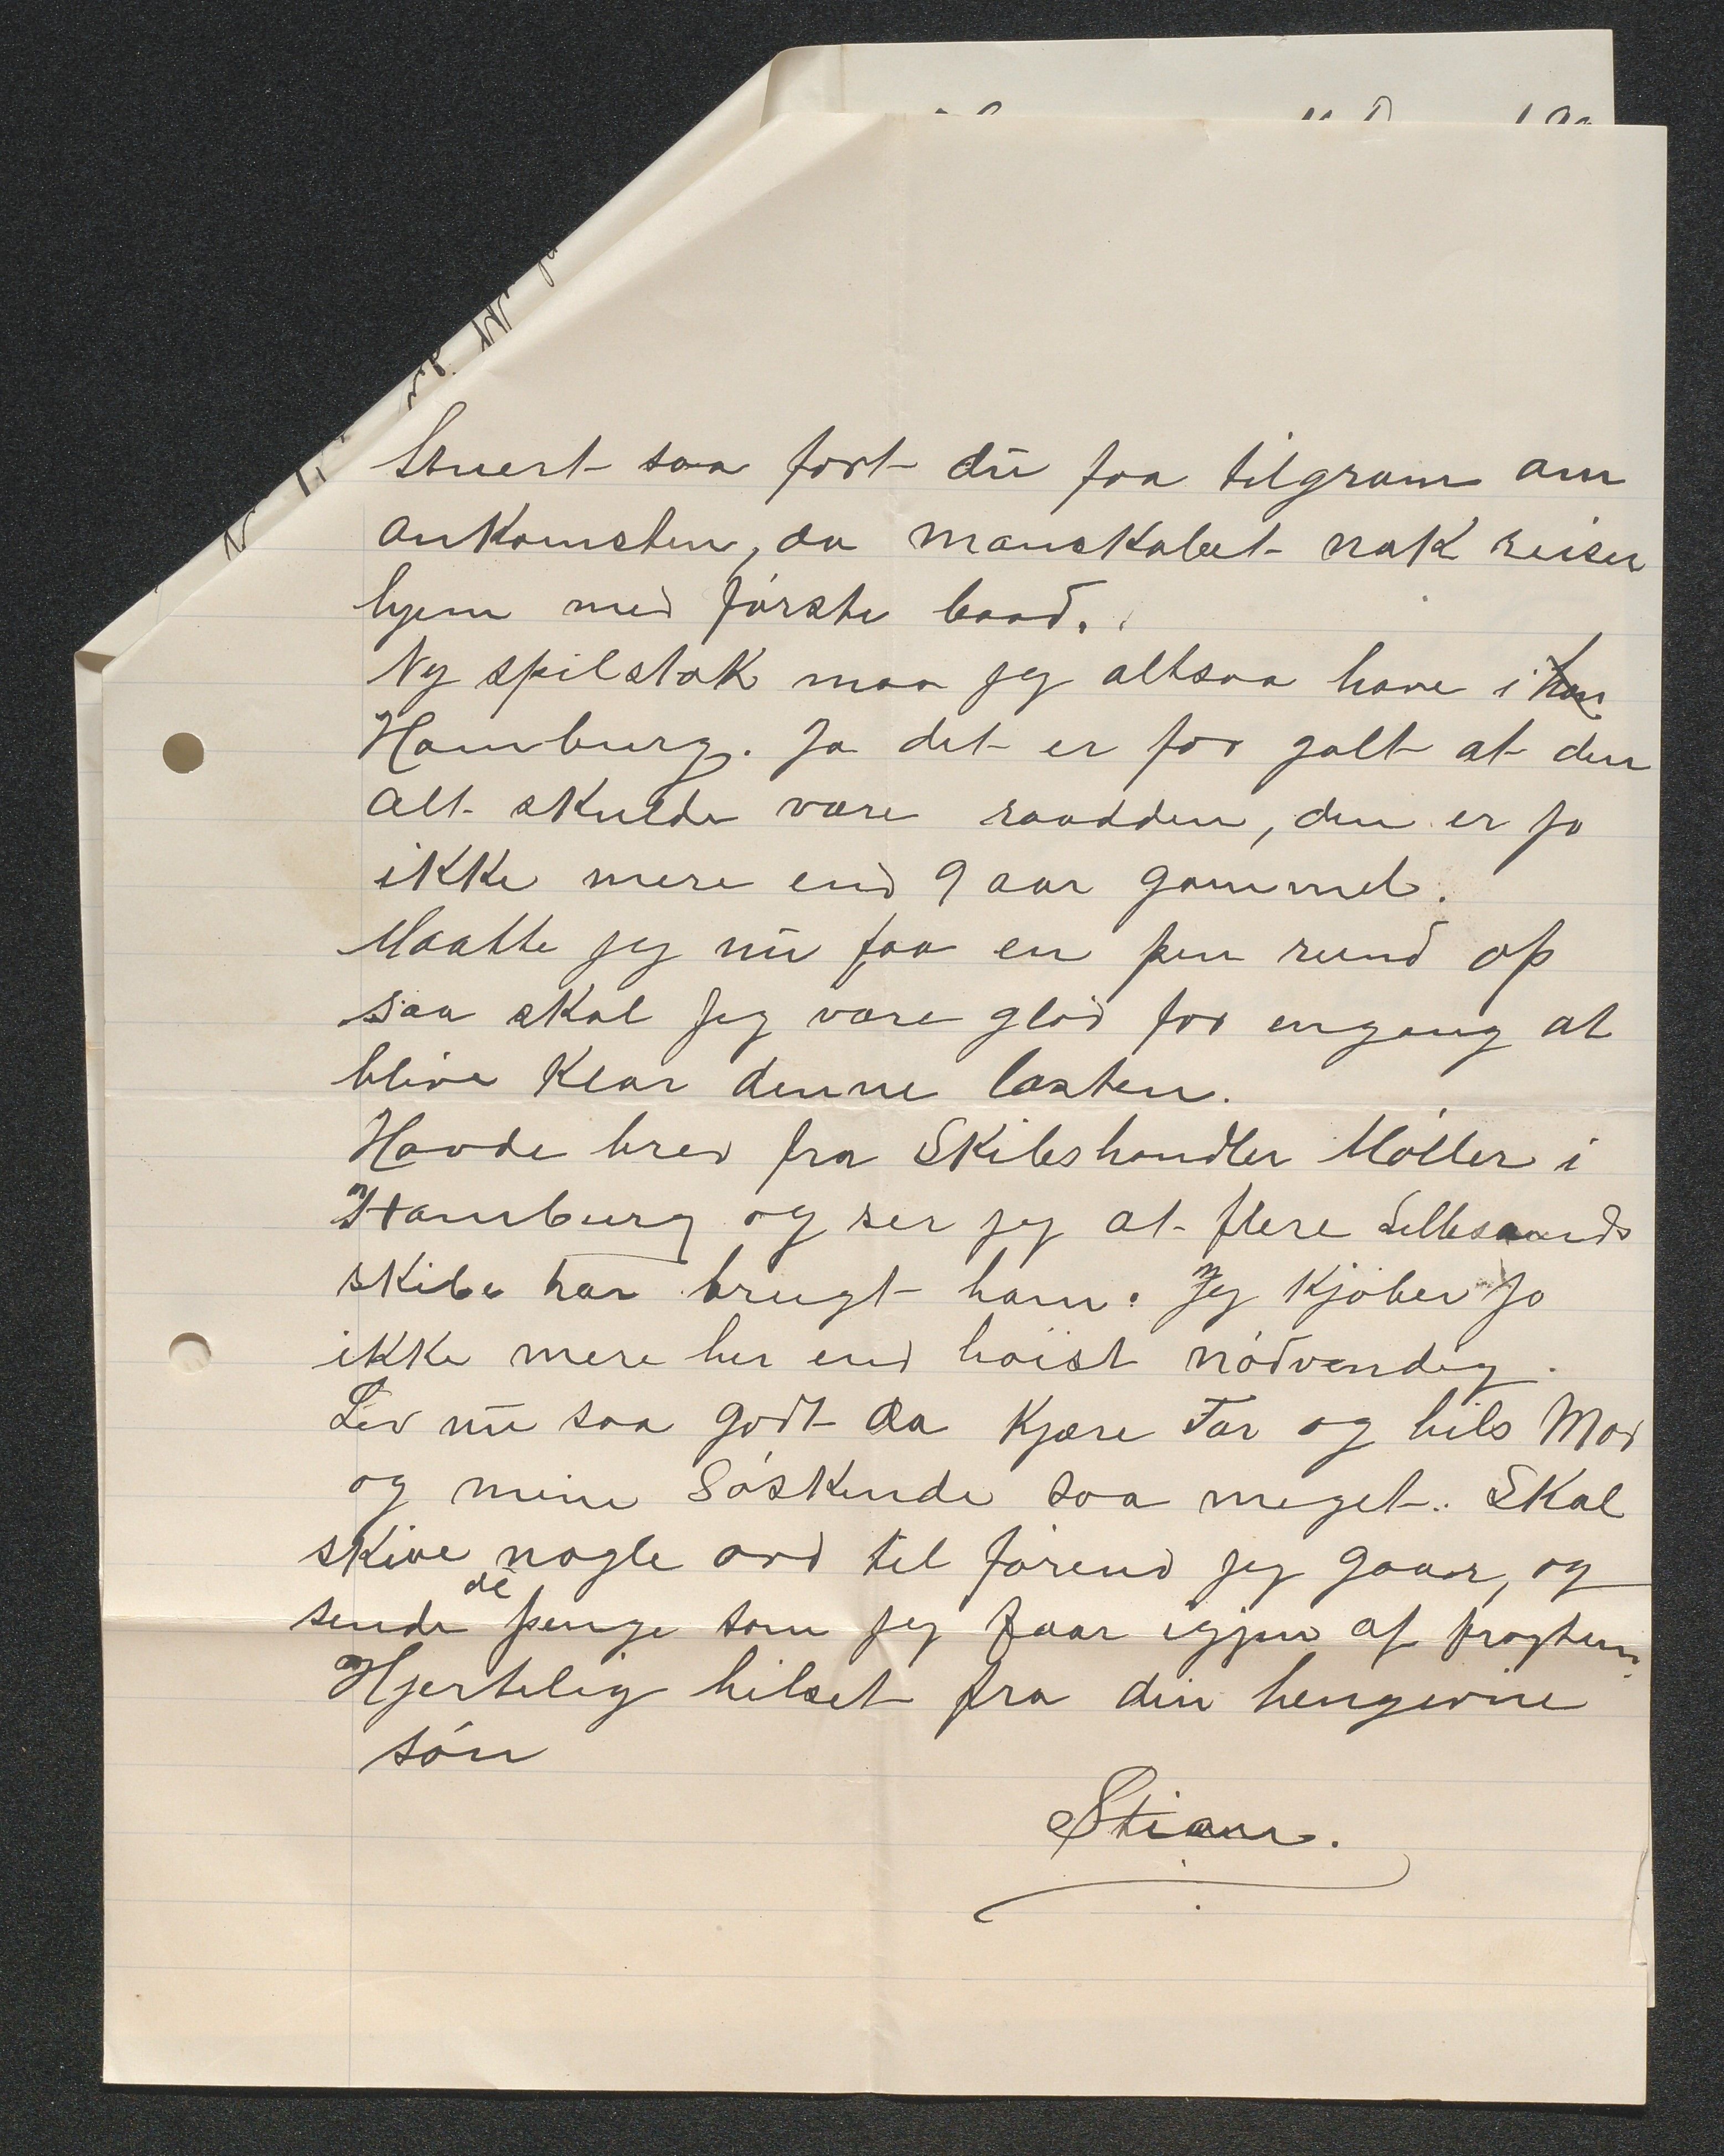 Stuert saa fort du faa tilgram om
ankomsten, da manskabet nok reiser
hjem med første baad.
Ny spilstok maa jeg altsaa have i
Hamburg. Ja det er for galt at den
alt skulde være raadden, den er jo
ikke mere end 9 aar gammel.
Maatte jeg nu faa en pen rund op
saa skal jeg være glad for engang at
blive klar denne lasten.
Havde brev fra Skibshandler Møller i
Hamburg og ser jeg at flere Lillesands
skibe har brugt ham. Jeg kjøber jo
ikke mere her end høist nødvendig.
Lev nu saa godt da kjære Far og hils Mor
og mine Søskende saa meget. Skal
skive nogle ord til førend jeg gaar, og
sende de penge som jeg faar igjen af fragten.
Hjertelig hilset fra din hengivne
søn
Stian.